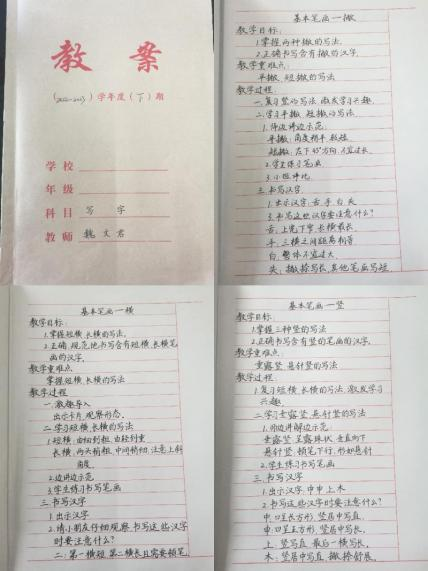 教案
(2022-2023)学年度(下)期
学校
年级
科目 写字
教师 魏文君
基本笔画一撇
教学目标:
1.掌握两种撇的写法.
2.正确书写含有撇的汉字.
教学重难点:
平撇、短撇的写法
教学过程:
一.复习竖的写法,激发学习兴趣.
二.学习平撇、短撇的写法.
1.师边讲边示范:
平撇:角度稍平,较短.
短撇:左下45°方向,不宜过长.
2.学生练习笔画
3.小组评比
三.书写汉字
1.出示汉字:舌、手、白、失
2.书写这些汉字要注意什么?
舌:上宽下窄,长横最长
手:三横之间距离相等
白:整体不宜过大.
失:撇捺写长,其他笔画写短.
基本笔画一横
教学目标:
1.掌握短横、长横的写法.
2.正确、规范地书写含有短横、长横笔
画的汉字.
教学重难点
掌握短横、长横的写法
教学过程
一.激趣导入
出示卡片,观察形态.
二.学习短横、长横的写法
1.短横:由细到粗,由轻到重
长横:两头稍粗,中间稍细,注意上斜
角度.
2.边讲边示范
3.学生练习书写笔画
三.书写汉字
1.出示汉字
2.请小朋友仔细观察,书写这些汉字
时要注意什么?
二:第一横短,第二横长且需要顿笔.
基本笔画一竖
教学目标:
1.掌握三种竖的写法
2.正确书写含有竖的笔画的汉字.
教学重难点:
垂露竖、悬针竖的写法
教学过程:
1.复习短横、长横的写法,激发学习
兴趣.
二.学习垂露竖、悬针竖的写法
1.师边讲解边示范:
垂露竖:呈露珠状,垂直向下
悬针竖:顿笔下行,形如悬针
2.学生练习书写笔画
三.书写汉字
1.出示汉字:中、申、上、木
2.书写这些汉字时要注意什么?
中:口呈长方形,竖居中写直.
申:曰呈长方形,竖居中写长.
上:竖写直,最后一横写长.
木:竖居中写直,撇捺舒展.